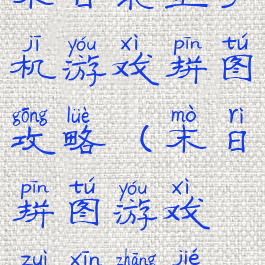 jī yóu xì pīn tú
机游戏拼图
gōng lüè mò rì
攻略(末日
pīn tú yóu xì
拼图游戏
zuì xīn zhāng jié